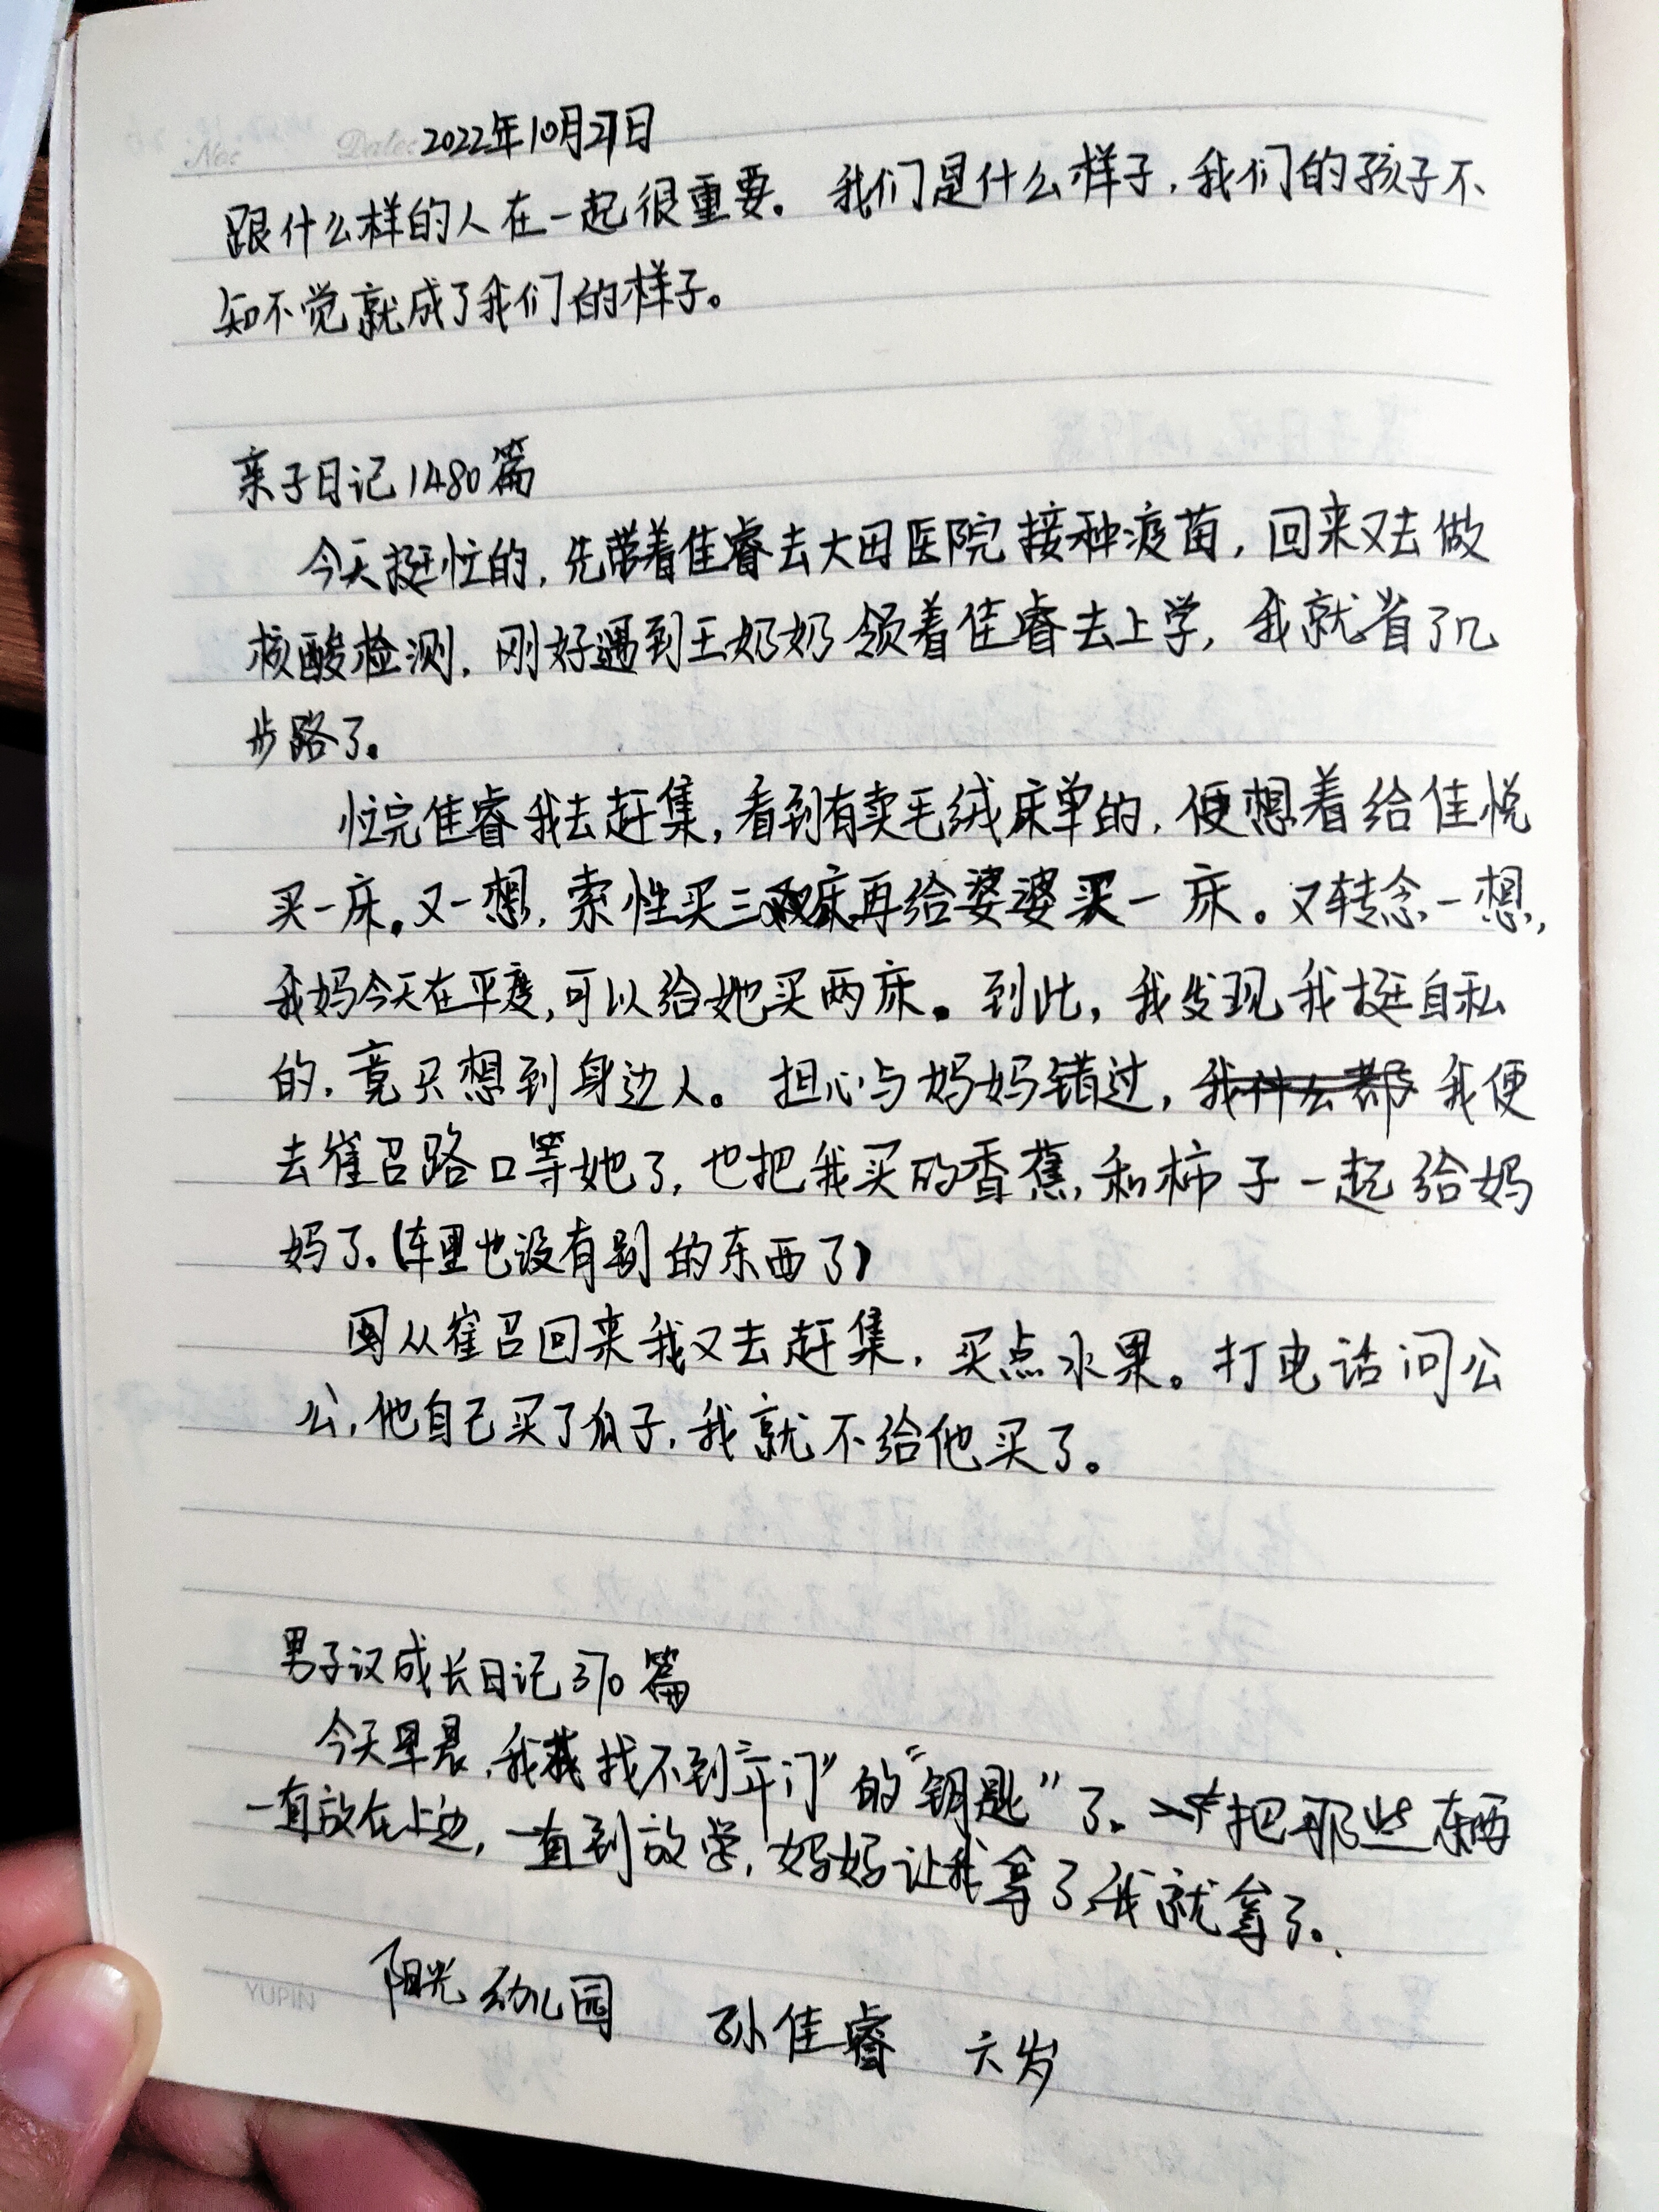 No:
Date: 2022年10月27日
跟什么样的人在一起很重要。我们是什么样子，我们的孩子不
知不觉就成了我们的样子。
亲子日记1480篇
今天挺忙的，先带着佳睿去大田医院接种疫苗，回来又去做
核酸检测，刚好遇到王奶奶领着佳睿去上学，我就省了几
步路了。
忙完佳睿我去赶集，看到有卖毛绒床单的，便想着给佳悦
买一床。又一想，索性买三床再给婆婆买一床。又转念一想，
我妈今天在平度，可以给她买两床。到此，我发现我挺自私
的，竟只想到身边人。担心与妈妈错过，我便
去崔召路口等她了，也把我买的香蕉，和柿子一起给妈
妈了。（车里也没有别的东西了）
从崔召回来我又去赶集，买点水果。打电话问公
公，他自己买了瓜子，我就不给他买了。
男子汉成长日记370篇
今天早晨，我找不到“车门”的“钥匙”了。把那些东西
一直放在上边，一直到放学，妈妈让我拿了，我就拿了。
阳光幼儿园 孙佳睿 六岁
YUPIN